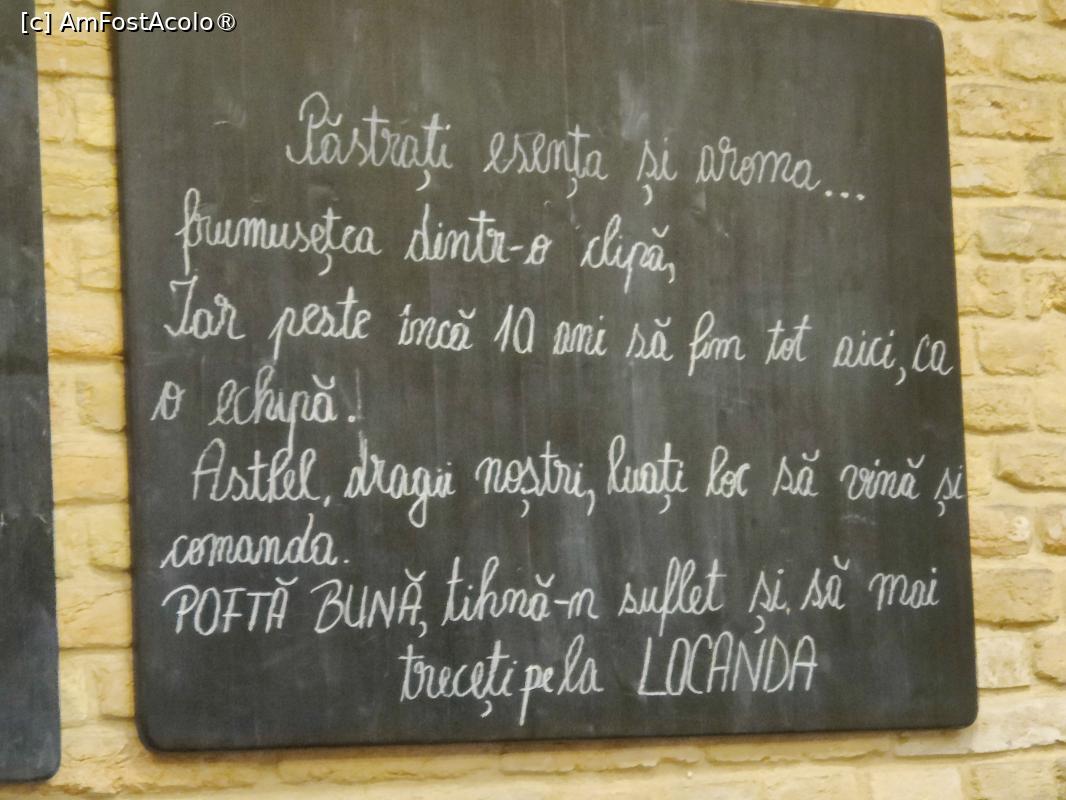 [c] AmFostAcolo®
Păstrați esența și aroma...
frumusețea dintr-o clipă,
Iar peste încă 10 ani să fim tot aici, ca
o echipă!
Astfel, dragii noștri, luați loc să vină și
comanda.
POFTĂ BUNĂ, tihnă-n suflet și să mai
treceți pe la LOCANDA